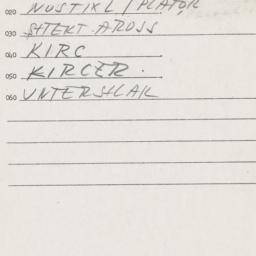 020 NUSTIXL / PLATOR
030 SHTEKT AROSS
040 KIRC
050 KIRCER.
060 UNTERSHLAK